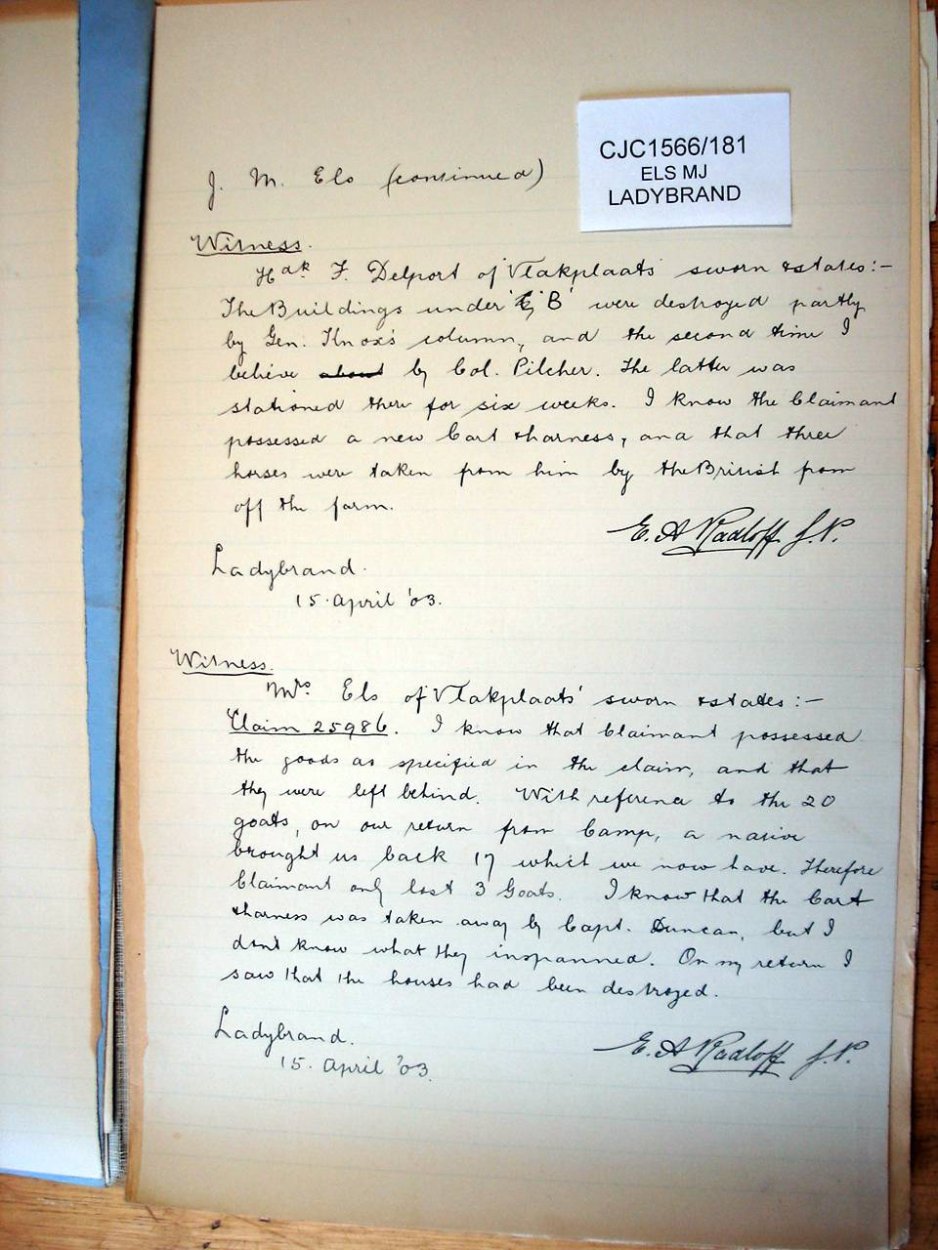 CJC1566/181
ELS MJ
LADYBRAND
J. M. Els (continued)
Witness.
Hdk F. Delport of 'Vlakplaats' sworn & states:-
The Buildings under 'B' were destroyed partly
by Gen. Knox's column, and the second time I
believe about by Col. Pilcher. The latter was
stationed there for six weeks. I know the Claimant
possessed a new Cart & harness, and that three
horses were taken from him by the British from
off the farm.
E. A. Radloff J.P.
Ladybrand.
15. April '03.
Witness.
Mrs. Els of 'Vlakplaats' sworn & states:-
Claim 25986. I know that Claimant possessed
the goods as specified in the claim, and that
they were left behind. With reference to the 20
goats, on our return from Camp, a native
brought us back 17 which we now have. Therefore
Claimant only lost 3 Goats. I know that the Cart
& harness was taken away by Capt. Duncan, but I
don't know what they inspanned. On my return I
saw that the houses had been destroyed.
Ladybrand.
15. April '03.
E. A. Radloff J.P.